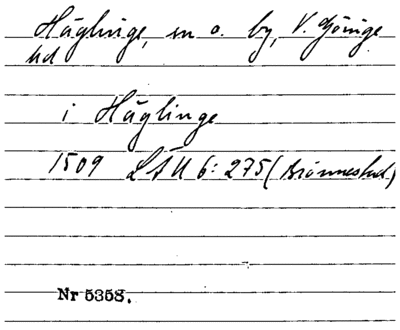 Häglinge, sn o. by, V. Göinge
hd
i Häglinge
1509 LÄU 6: 275 (Brönnestad)
Nr 5358.